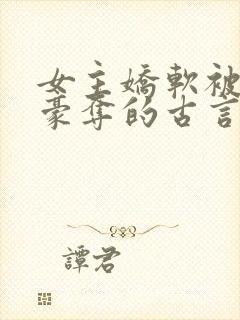 女主嬌軟被
豪奪的古言
譚君